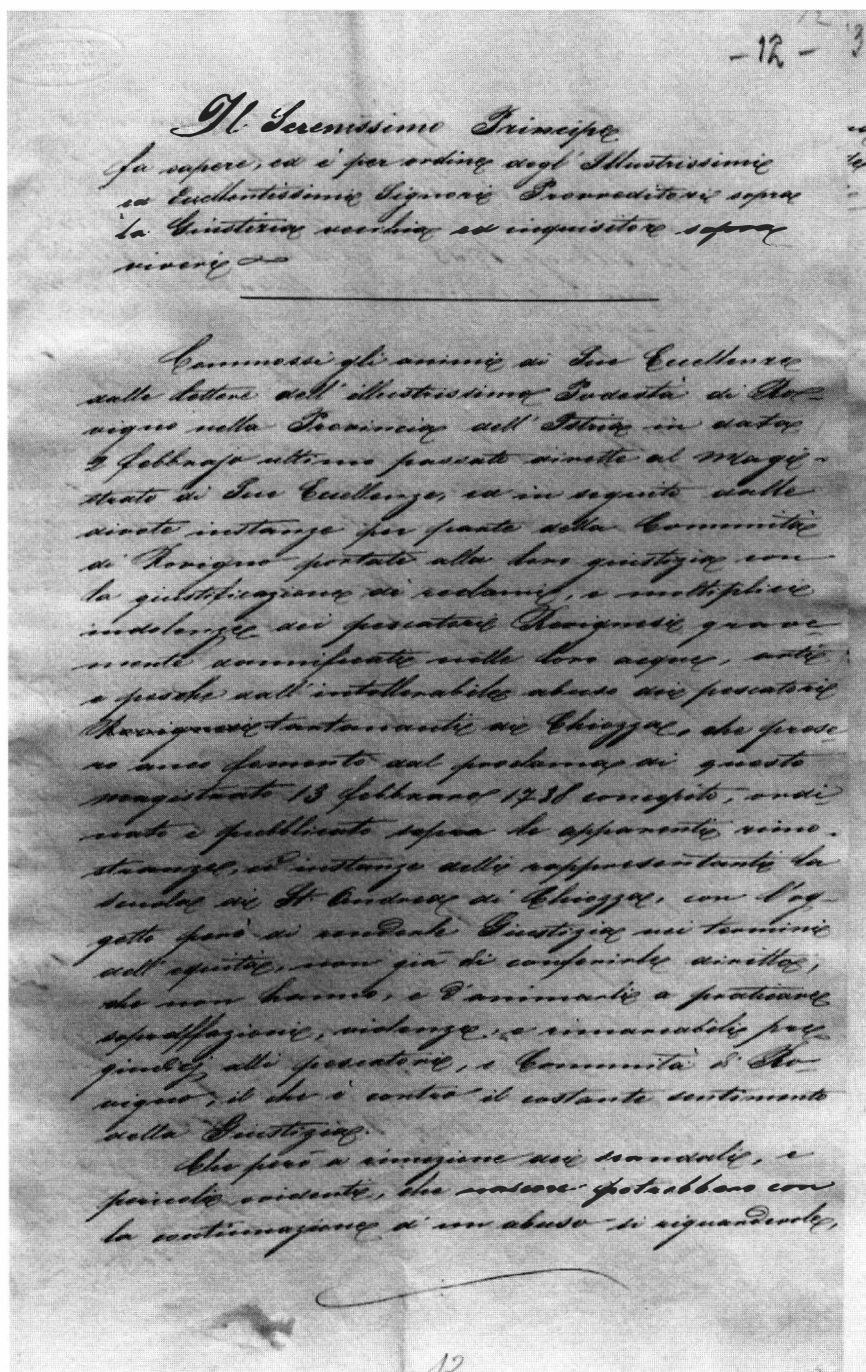 - 12 -
Il Serenissimo Principe
fa sapere, ed è per ordine degl' Illustrissimi
ed Eccellentissimi Signori Provveditori sopra
la Giustizia vecchia ed inquisitore sopra
viveri
Commossi gli animi di Sue Eccellenze
dalle lettere dell' illustrissimo Podestà di Ro-
vigno nella Provincia dell' Istria in data
2 febbrajo ultimo passato dirette al Magi-
strato di Sue Eccellenze, ed in seguito dalle
divote instanze per parte della Comunità
di Rovigno portate alla loro giustizia con
la giustificazione di reclami, e moltiplici
indolenze dei pescatori Rovignesi grave-
mente dannificati nelle loro acque, arti
e pesche dall' intollerabile abuso dei pescatori
tartananti di Chiozza, che prese-
ro anco fomento dal proclama di questo
magistrato 13 febbraro 1738 concepito, ordi-
nato e pubblicato sopra le apparenti rimo-
stranze, ed instanze delli rappresentanti la
scuola di St. Andrea di Chiozza, con l' og-
getto però di renderle Giustizia nei termini
dell' equità, non già di conferirle diritto,
che non hanno, e d' animarli a praticare
sopraffazioni, violenze, e rimarcabili pre-
giudizj alli pescatori, e Comunità di Ro-
vigno, il che è contro il costante sentimento
della Giustizia.
Che però a rimozione dei scandali, e
pericoli evidenti, che nascere potrebbero con
la continuazione d' un abuso si riguardevole,
12